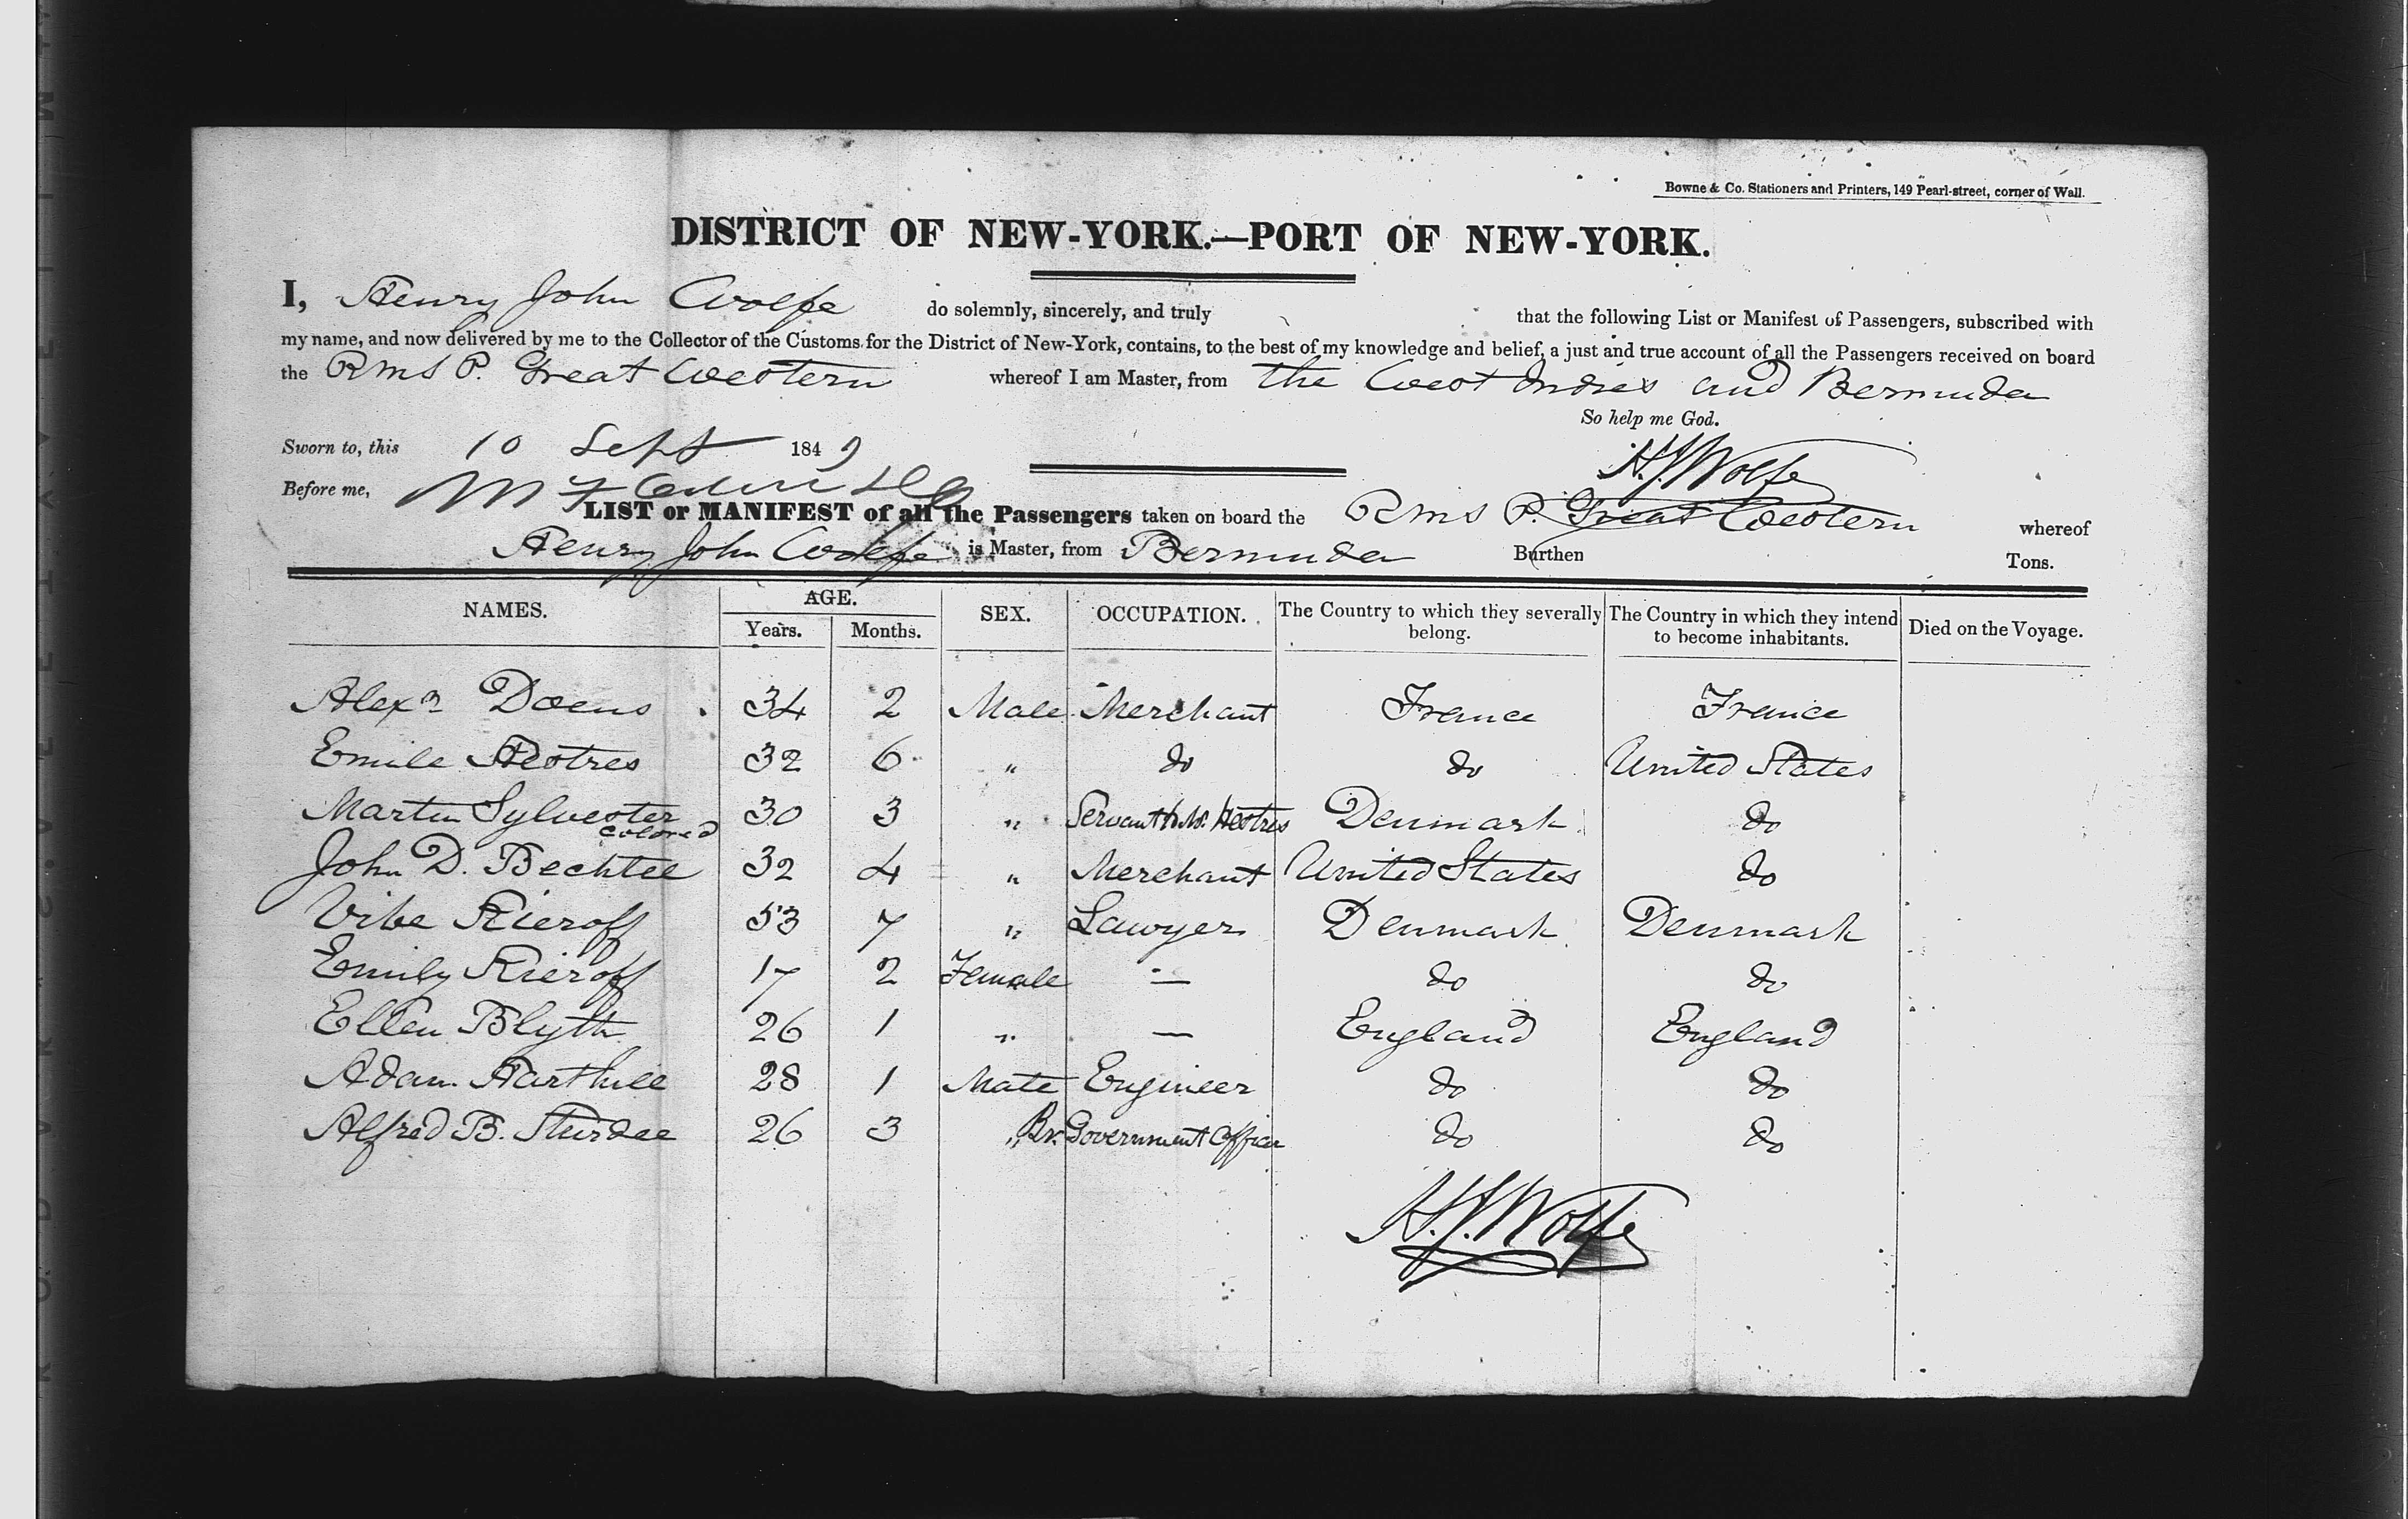 Bowne & Co. Stationers and Printers, 149 Pearl-street, corner of Wall.
DISTRICT OF NEW-YORK.—PORT OF NEW-YORK.
I, Henry John Wolfe do solemnly, sincerely, and truly that the following List or Manifest of Passengers, subscribed with
my name, and now delivered by me to the Collector of the Customs for the District of New-York, contains, to the best of my knowledge and belief, a just and true account of all the Passengers received on board
the RMS P. Great Western whereof I am Master, from the West Indies and Bermuda
So help me God.
Sworn to, this 10 Sept 1849
H. J. Wolfe
Before me,
LIST or MANIFEST of all the Passengers taken on board the RMS P. Great Western whereof
Henry John Wolfe is Master, from Bermuda Burthen Tons.
NAMES. AGE. Years. Months. SEX. OCCUPATION. The Country to which they severally belong. The Country in which they intend to become inhabitants. Died on the Voyage.
Alexr Doens 34 2 Male Merchant France France
Emile Hestres 32 6 " do do United States
Martin Sylvester colored 30 3 " Servant to Mr. Hestres Denmark do
John D. Bechtel 32 4 " Merchant United States do
Vibe Kieroff 53 7 " Lawyer Denmark Denmark
Emily Kieroff 17 2 Female — do do
Ellen Blyth 26 1 " — England England
Adam Harthill 28 1 Male Engineer do do
Alfred B. Sturdee 26 3 " Br. Government Officer do do
H. J. Wolfe